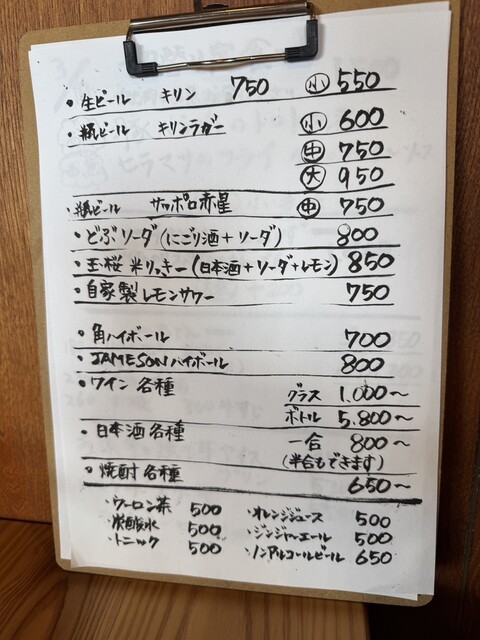 ・生ビール キリン 750 ㋛ 550
・瓶ビール キリンラガー 小 600
中 750
大 950
・瓶ビール サッポロ赤星 中 750
・どぶソーダ(にごり酒+ソーダ) 800
・玉桜 米リッキー(日本酒+ソーダ+レモン) 850
・自家製レモンサワー 750
・角ハイボール 700
・JAMESONハイボール 800
・ワイン 各種 グラス 1,000〜
ボトル 5,800〜
・日本酒 各種 一合 800〜
(半合もできます)
・焼酎 各種 650〜
・ウーロン茶 500 ・オレンジジュース 500
・炭酸水 500 ・ジンジャーエール 500
・トニック 500 ・ノンアルコールビール 650